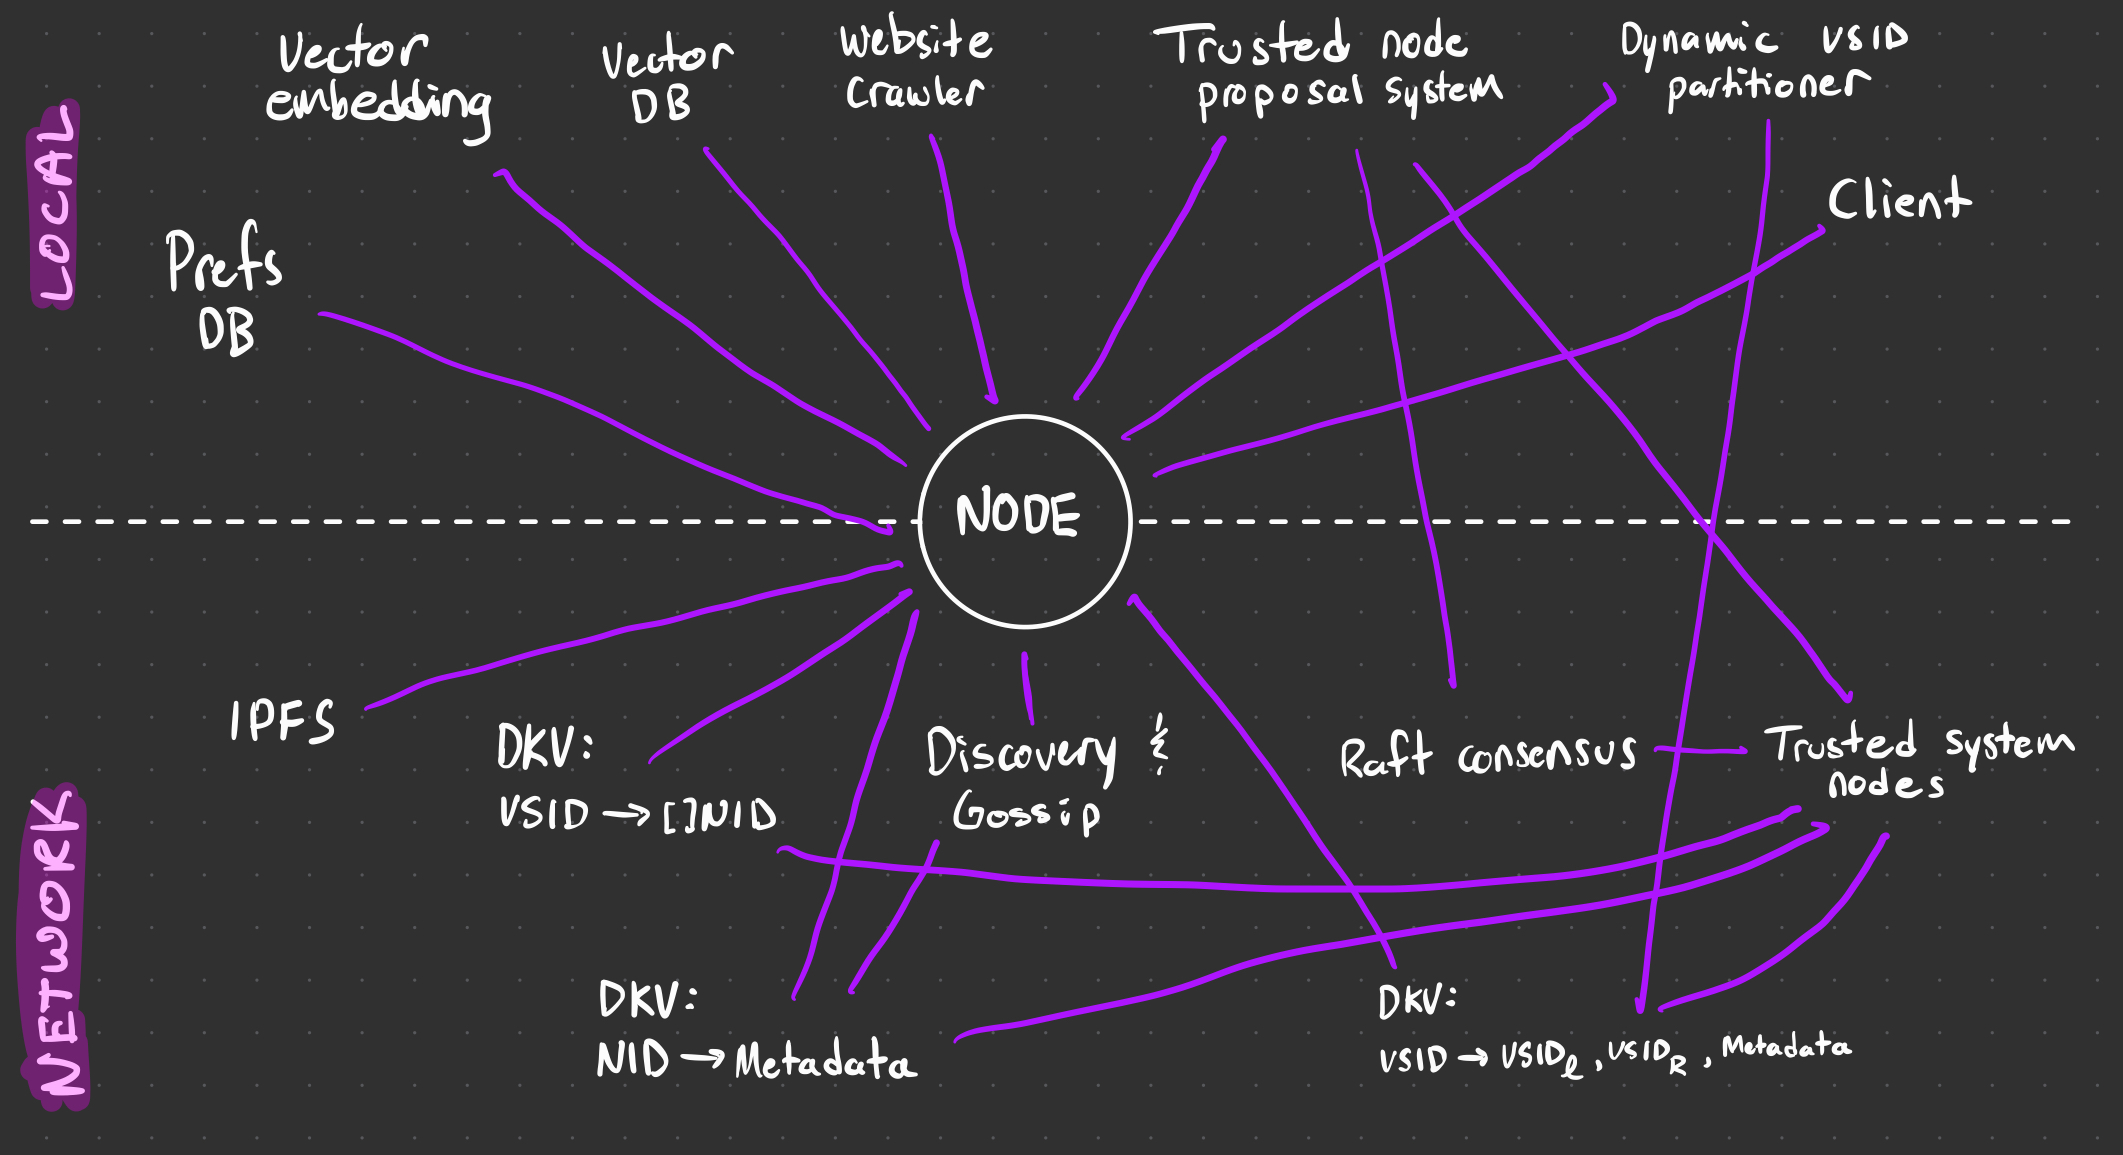 LOCAL
Vector
embedding
Vector
DB
Website
Crawler
Trusted node
proposal system
Dynamic VSID
partitioner
Client
Prefs
DB
NODE
NETWORK
IPFS
DKV:
VSID → []NID
Discovery &
Gossip
Raft consensus
Trusted system
nodes
DKV:
NID → Metadata
DKV:
VSID → VSIDℓ, VSIDR, Metadata